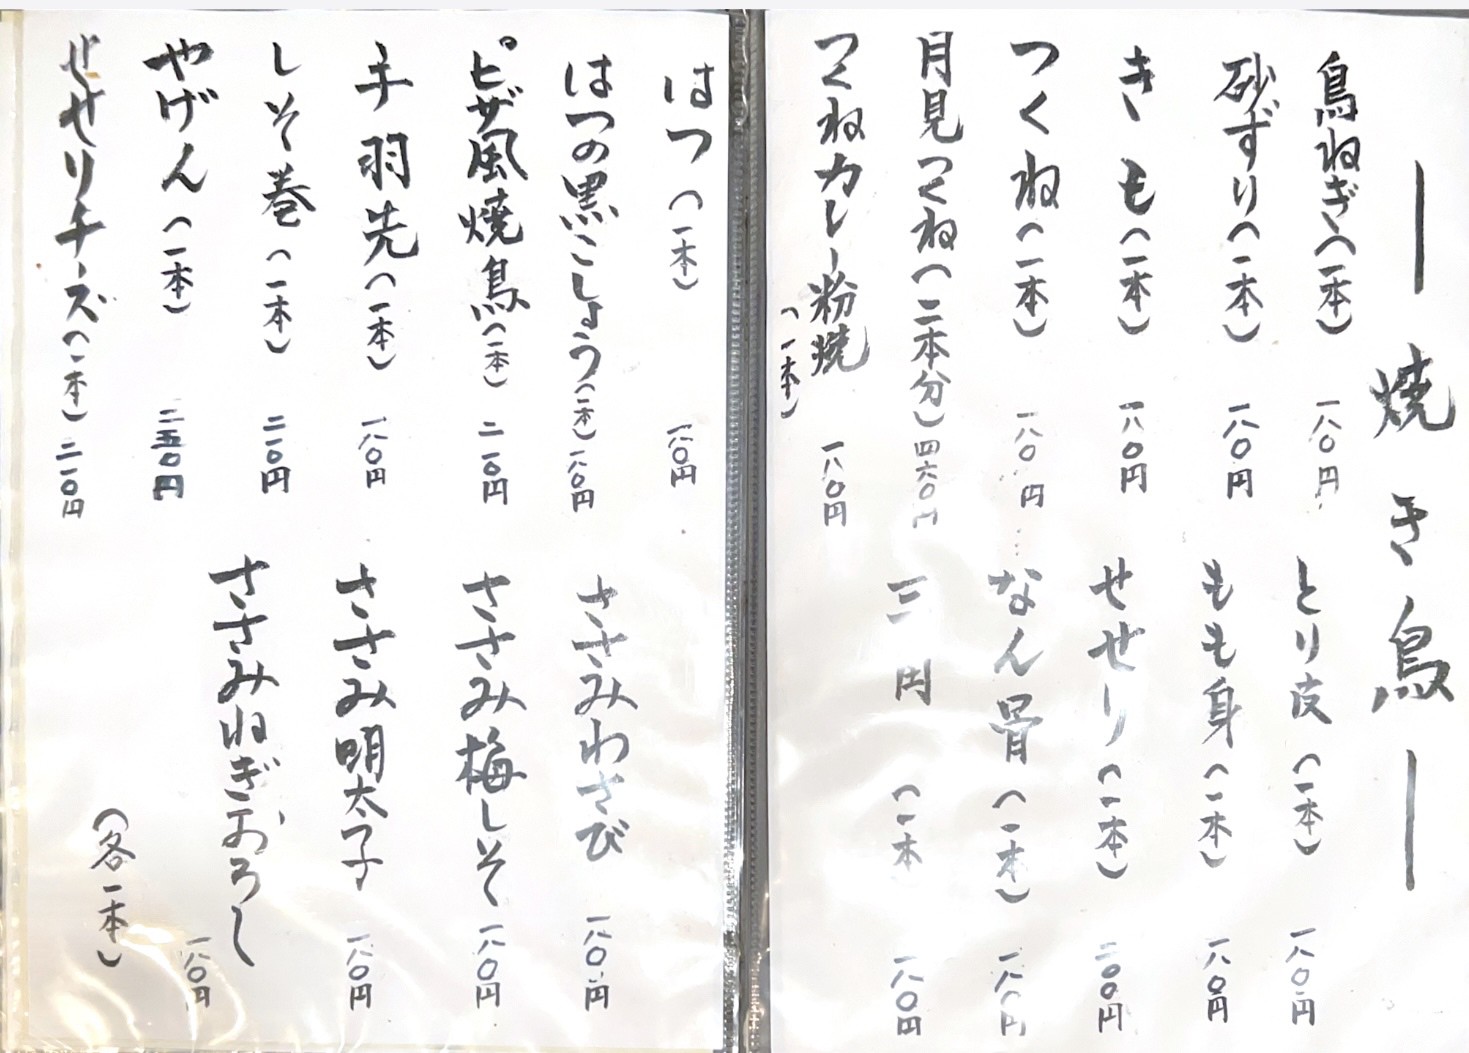 ― 焼き鳥 ―
鳥ねぎ(一本) 一八〇円
砂ずり(一本) 一八〇円
きも(一本) 一八〇円
つくね(一本) 一八〇円
月見つくね(二本分) 四六〇円
つくねカレー粉焼(一本) 一八〇円
とり皮(一本) 一八〇円
もも身(一本) 一八〇円
せせり(一本) 二〇〇円
なん骨(一本) 一八〇円
三角(一本 一八〇円
はつ(一本) 一八〇円
はつの黒こしょう(一本) 一八〇円
ピザ風焼鳥(一本) 二一〇円
手羽先(一本) 一八〇円
しそ巻(一本) 二一〇円
やげん(一本) 二五〇円
せせりチーズ(一本) 二一〇円
ささみわさび 一八〇円
ささみ梅しそ 一八〇円
ささみ明太子 一八〇円
ささみねぎおろし 一八〇円
(各一本)